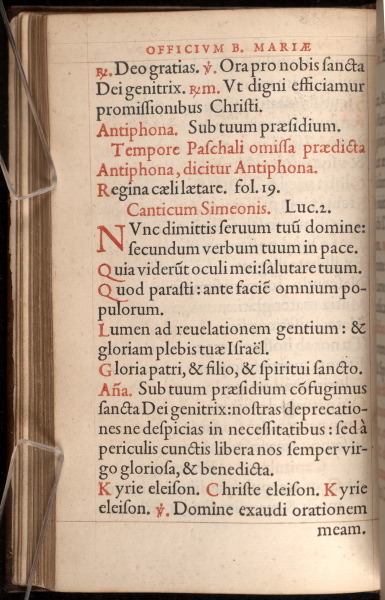 OFFICIVM B. MARIÆ
℟. Deo gratias. ℣. Ora pro nobis ſancta
Dei genitrix. ℟m. Vt digni efficiamur
promiſſionibus Chriſti.
Antiphona. Sub tuum præſidium.
Tempore Paſchali omiſſa prædicta
Antiphona, dicitur Antiphona.
Regina cæli lætare. fol. 19.
Canticum Simeonis. Luc. 2.
NVnc dimittis ſeruum tuũ domine:
ſecundum verbum tuum in pace.
Quia viderũt oculi mei: ſalutare tuum.
Quod paraſti: ante faciẽ omnium po-
pulorum.
Lumen ad reuelationem gentium: &
gloriam plebis tuæ Iſraël.
Gloria patri, & filio, & ſpiritui ſancto.
Aña. Sub tuum præſidium cõfugimus
ſancta Dei genitrix: noſtras deprecatio-
nes ne deſpicias in neceſſitatibus: ſed à
periculis cunctis libera nos ſemper vir-
go glorioſa, & benedicta.
Kyrie eleiſon. Chriſte eleiſon. Kyrie
eleiſon. ℣. Domine exaudi orationem
meam.